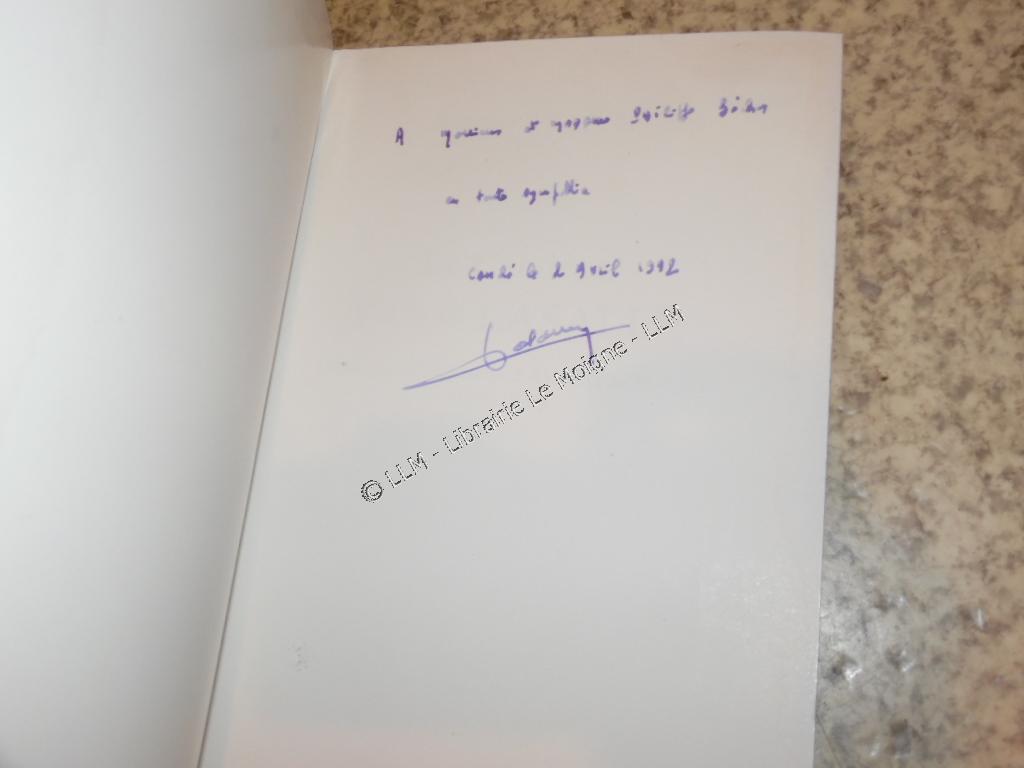 A Monsieur et Madame Philippe
en toute sympathie
Condé le 2 Avril 1992
© LLM - Librairie Le Moigne - LLM